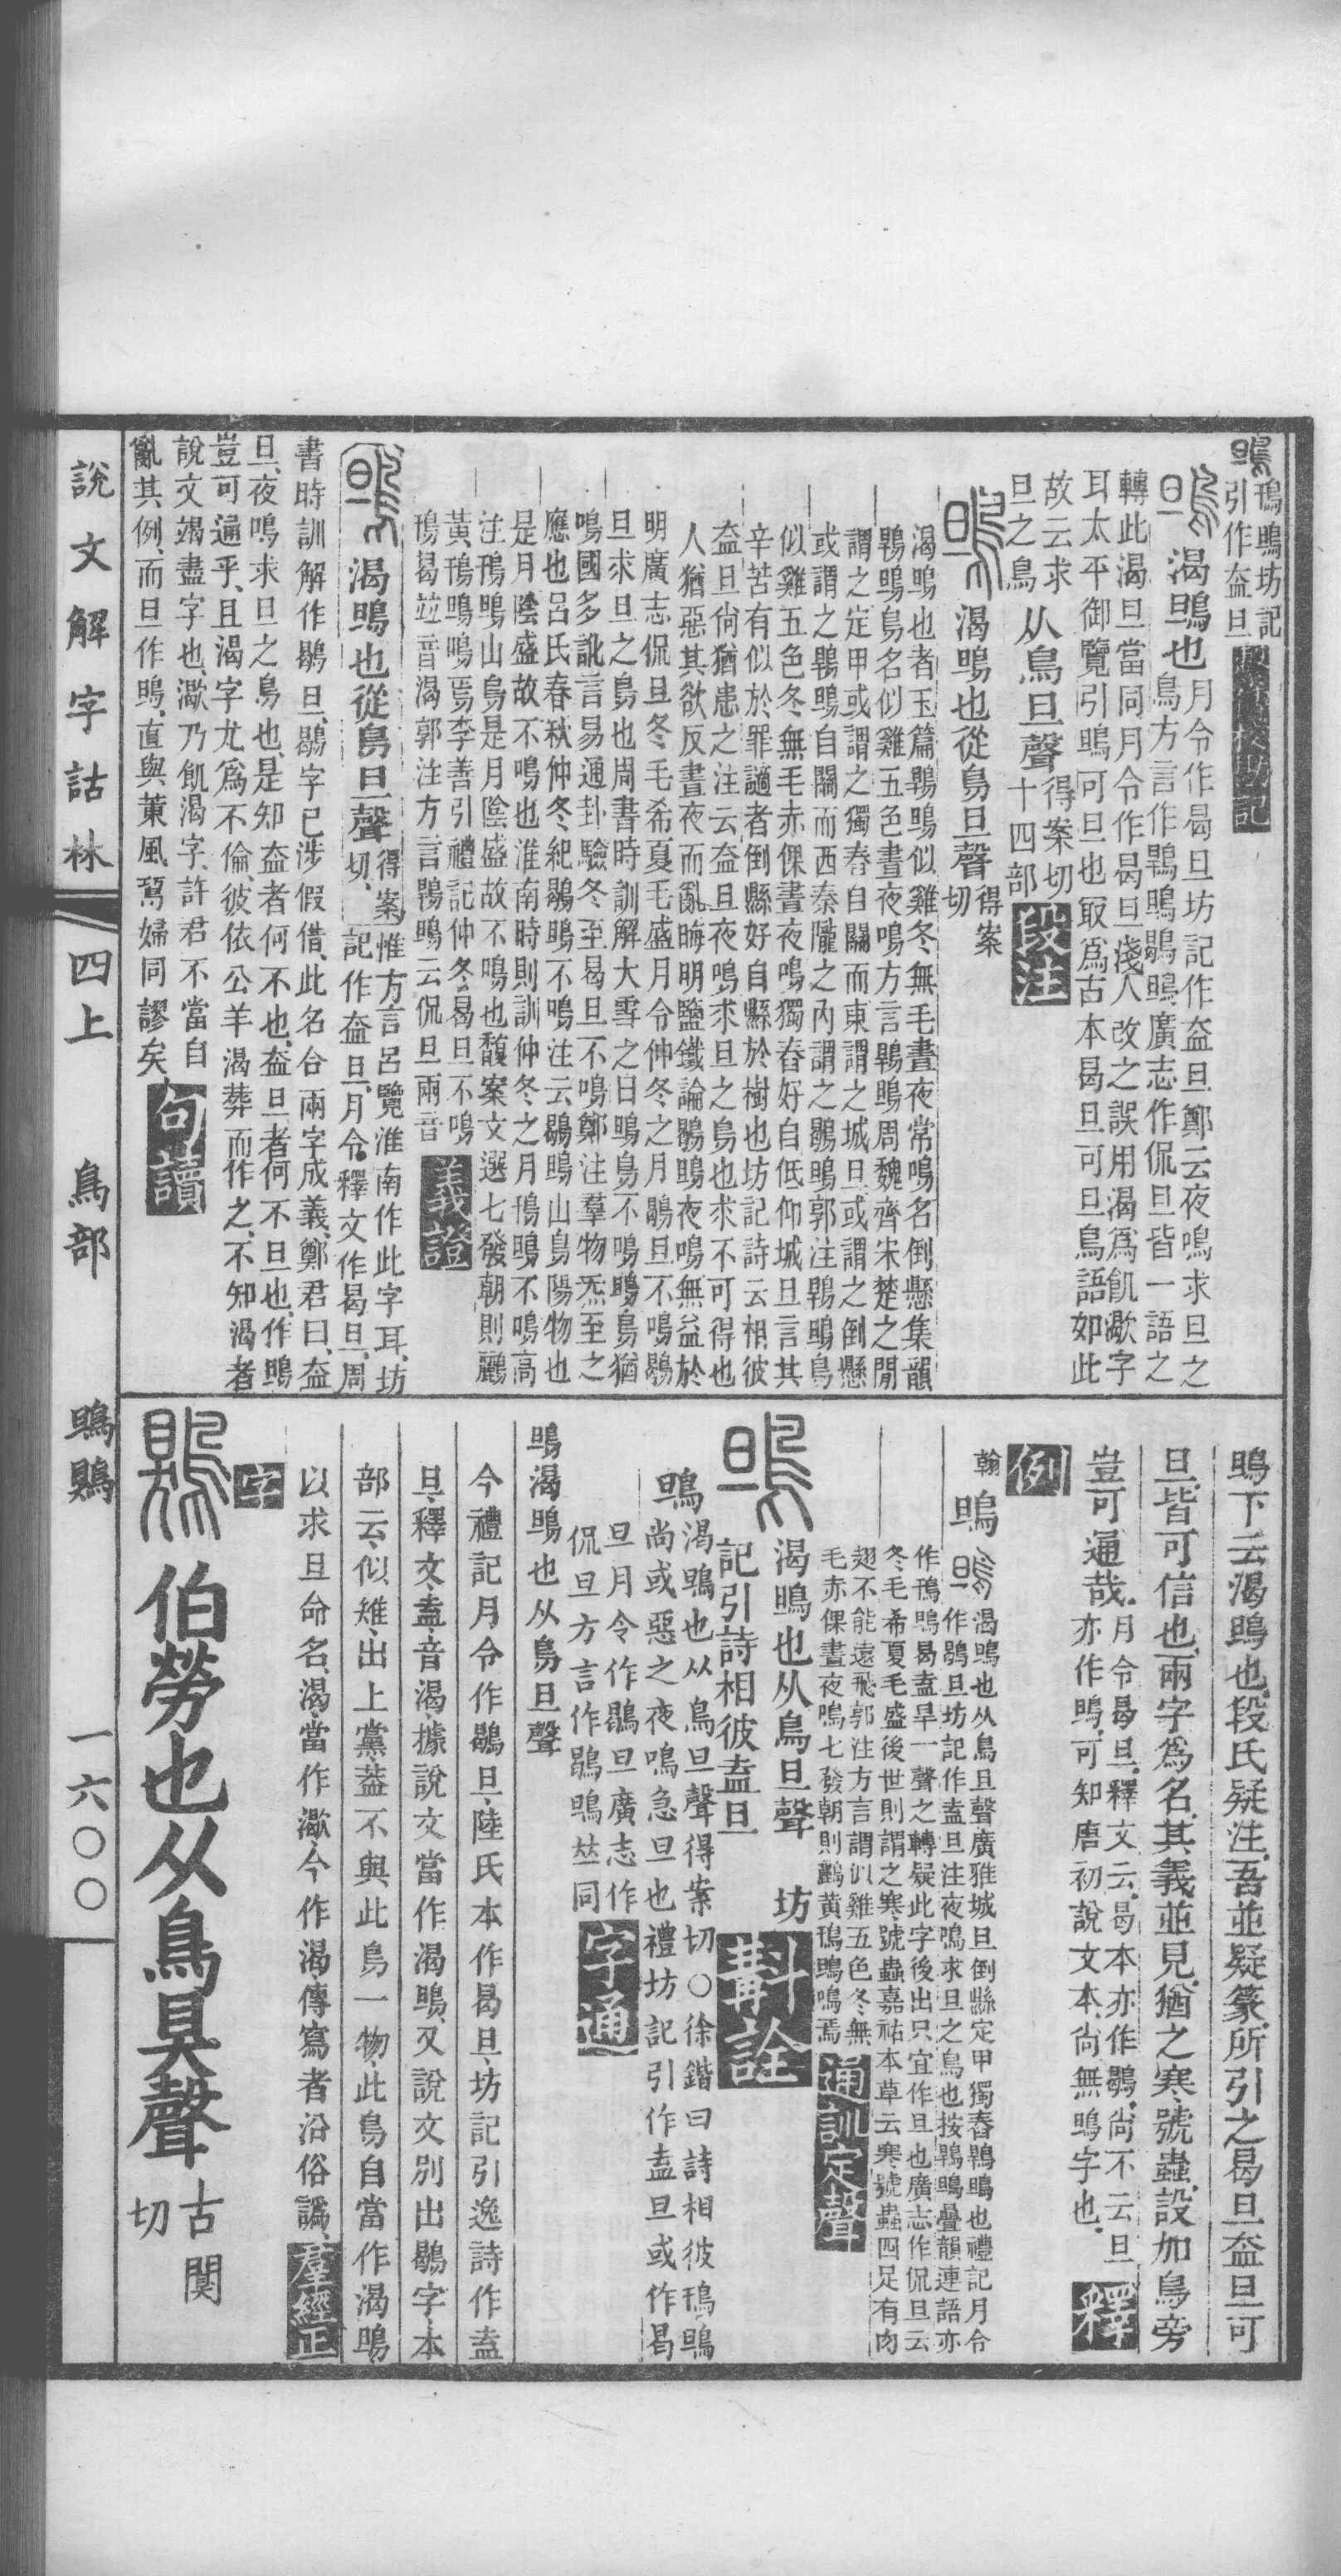 鴠 鳱鴠坊記
引作盇旦
鴠 渴鴠也 月令作曷旦坊記作盇旦鄭云夜鳴求旦之
鳥方言作鶡鴠鶡鴠廣志作侃旦皆一語之
轉此渴旦當同月令作曷旦淺人改之誤用渴爲飢漱字
耳太平御覽引鴠可旦也㪅爲古本曷旦可旦鳥語如此
故云求
旦之鳥 从鳥旦聲 得案切
十四部 段注
鴠 渴鴠也從鳥旦聲 得案
切
渴鴠也者玉篇鶡鴠似雞冬無毛晝夜常鳴名倒懸集韻
鶡鴠鳥名似雞五色晝夜鳴方言鶡鴠周魏齊宋楚之閒
謂之定甲或謂之獨舂自關而東謂之城旦或謂之倒懸
或謂之鶡鴠自關而西秦隴之內謂之鶡鴠郭注鶡鴠鳥
似雞五色冬無毛赤倮晝夜鳴獨舂好自低仰城旦言其
辛苦有似於罪讁者倒縣好自縣於樹也坊記詩云相彼
盇旦尙猶患之注云盇旦夜鳴求旦之鳥也求不可得也
人猶惡其欲反晝夜而亂晦明鹽鐵論鶡鴠夜鳴無益於
明廣志侃旦冬毛希夏毛盛月令仲冬之月鶡旦不鳴鶡
旦求旦之鳥也周書時訓解大雪之日鴠鳥不鳴鴠鳥猶
鳴國多訛言易通卦驗冬至曷旦不鳴鄭注羣物炁至之
應也呂氏春秋仲冬紀鶡鴠不鳴注云鶡鴠山鳥陽物也
是月陰盛故不鳴也淮南時則訓仲冬之月鳱鴠不鳴高
注鳱鴠山鳥是月陰盛故不鳴也馥案文選七發朝則鸝
黃鳱鴠鳴焉李善引禮記仲冬曷旦不鳴
鳱曷竝音渴郭注方言鶡鴠云侃旦兩音 義證
鴠 渴鴠也從鳥旦聲 得案
切 惟方言呂覽淮南作此字耳坊
記作盇旦月令釋文作曷旦周
書時訓解作鶡旦鶡字已涉假借此名合兩字成義鄭君曰盇
旦夜鳴求旦之鳥也是知盇者何不也盇旦者何不旦也作鴠
豈可通乎且渴字尤爲不倫彼依公羊渴葬而作之不知渴者
說文竭盡字也漱乃飢渴字許君不當自
亂其例而旦作鴠直與蕫風䳑婦同謬矣 句讀
鴠下云渴鴠也段氏疑注吾並疑篆所引之曷旦盇旦可
旦皆可信也兩字爲名其義並見猶之寒號蟲設加鳥旁
豈可通哉 月令曷旦釋文云曷本亦作鶡尙不云旦
亦作鴠可知唐初說文本尙無鴠字也 釋
例
翰 鴠 渴鴠也从鳥旦聲廣雅城旦倒縣定甲獨舂鶡鴠也禮記月令
作鶡旦坊記作盍旦注夜鳴求旦之鳥也按鶡鴠疊韻連語亦
作鳱鴠曷盍旱一聲之轉疑此字後出只宜作旦也廣志作侃旦云
冬毛希夏毛盛後世則謂之寒號蟲嘉祐本草云寒號蟲四足有肉
翅不能遠飛郭注方言謂似雞五色冬無
毛赤倮晝夜鳴七發朝則鸝黃鳱鴠鳴焉 通訓定聲
鴠 渴鴠也从鳥旦聲 坊
記引詩相彼盍旦 斠詮
鴠 渴鴠也从鳥旦聲得案切○徐鍇曰詩相彼鳱鴠
尚或惡之夜鳴急旦也禮坊記引作盍旦或作曷
旦月令作鶡旦廣志作
侃旦方言作鶡鴠竝同 字通
鴠渴鴠也从鳥旦聲
今禮記月令作鶡旦陸氏本作曷旦坊記引逸詩作盍
旦釋文盍音渴據說文當作渴鴠又說文別出鶡字本
部云似雉出上黨葢不與此鳥一物此鳥自當作渴鴠
以求旦命名渴當作漱今作渴傳寫者沿俗譌 羣經正
字
鶪 伯勞也从鳥狊聲 古闃
切
說文解字詁林 四上 鳥部 鴠鶪 一六〇〇